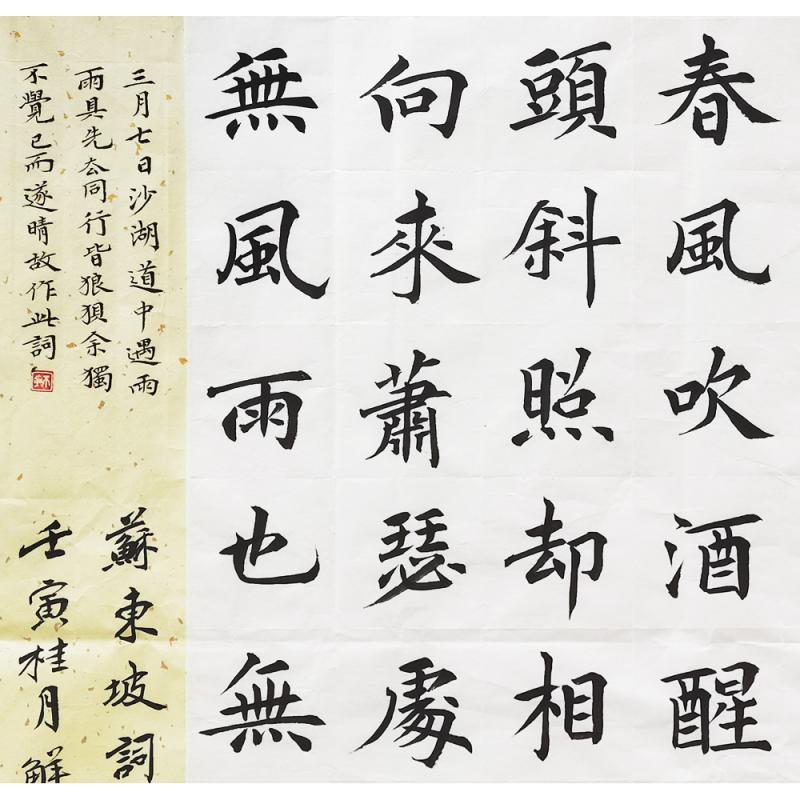 春風吹酒醒
頭斜照却相
向來蕭瑟處
無風雨也無
三月七日沙湖道中遇雨
雨具先去同行皆狼狽余獨
不覺已而遂晴故作此詞
蘇東坡詞
壬寅桂月鮮